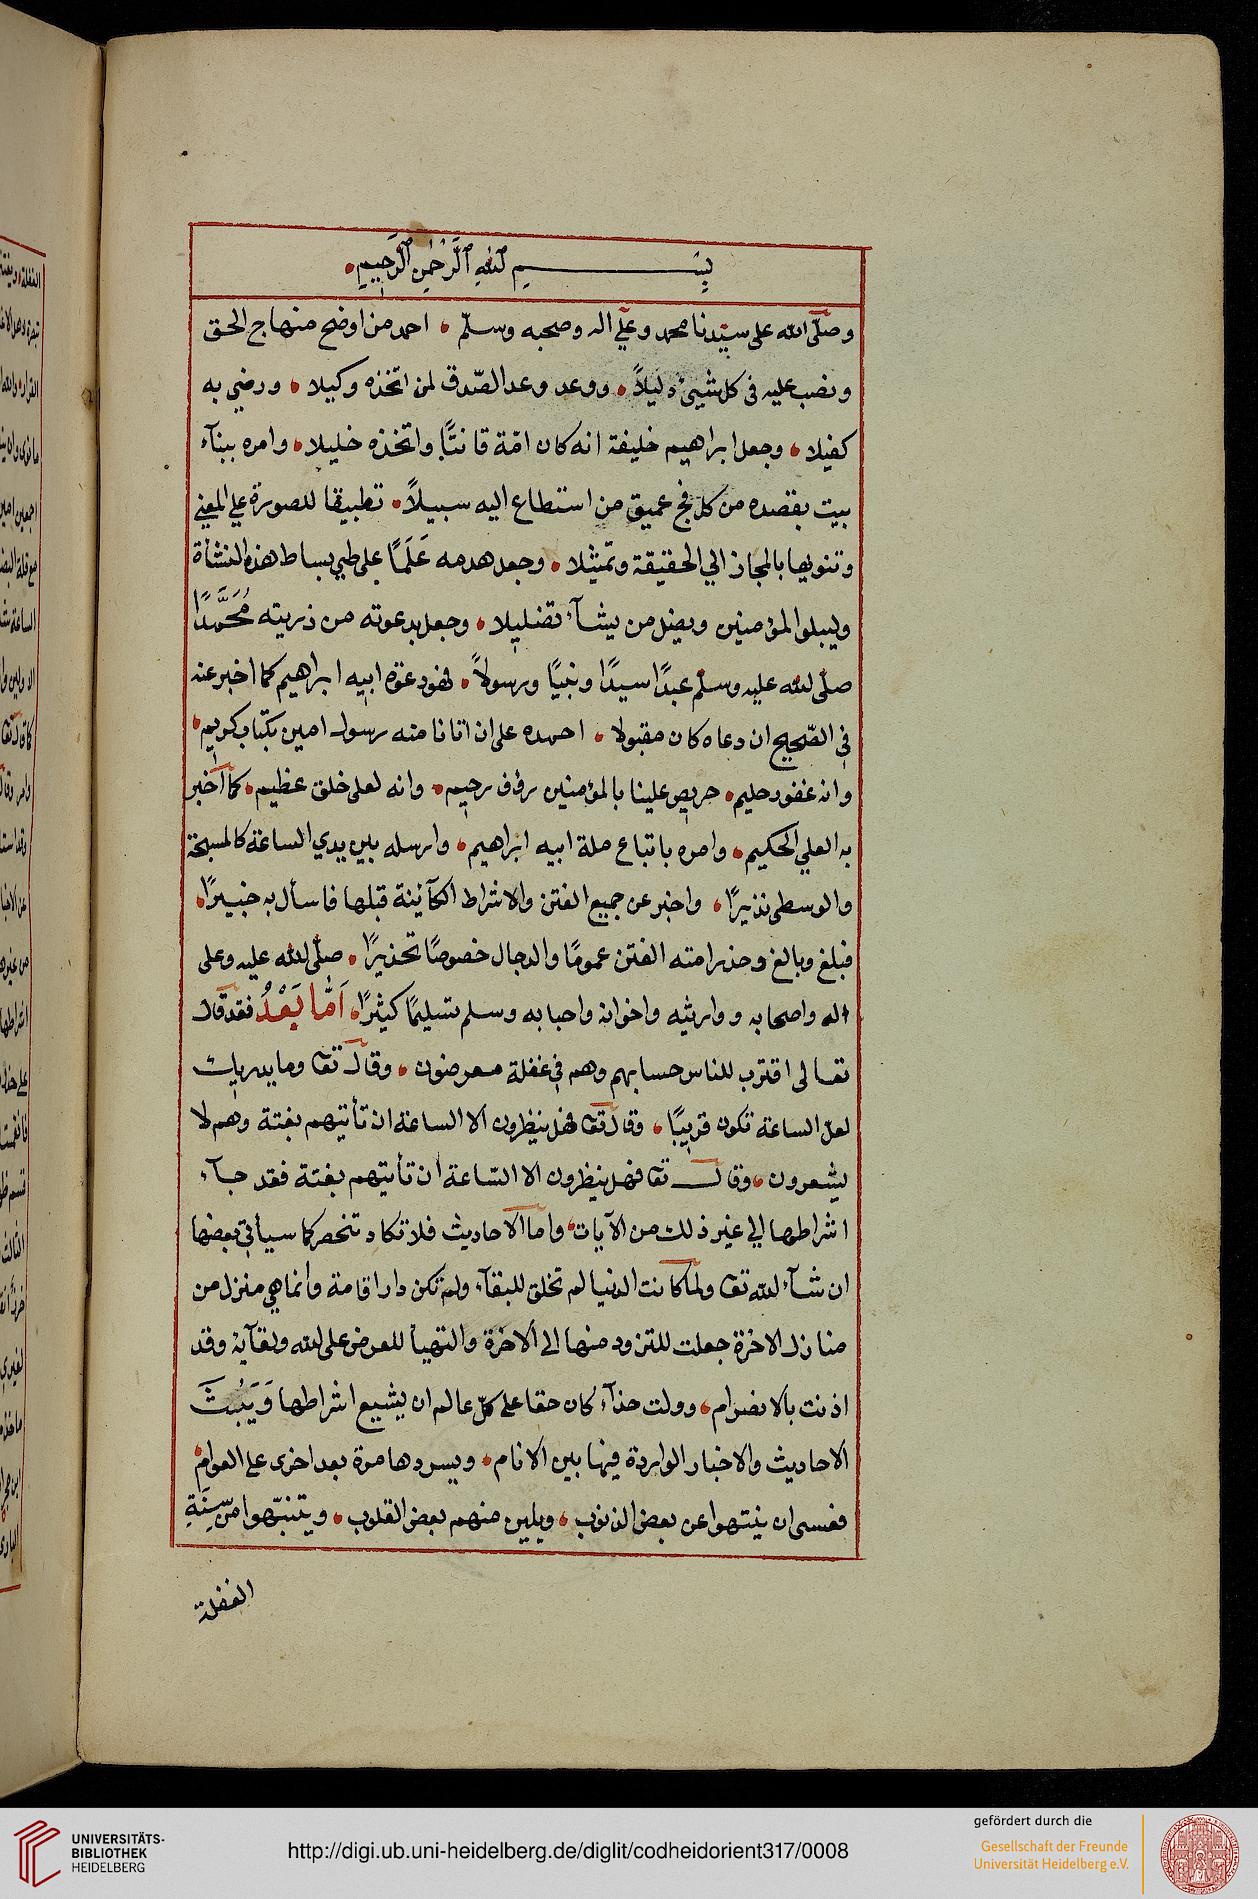 بسم الله الرحمن الرحيم
وصلّى الله على سيّدنا محمد وعلي اله وصحبه وسلّم • احمد من اوضح منهاج الحق
ونصب عليه في كل شيئ دليلاً • ووعد وعد الصّدق لمن اتخذه وكيلا • ورضي به
كفيلا • وجعل ابراهيم خليفة انه كان امّة قانتًا واتخذه خليلا • وامره ببنآء
بيت يقصده من كل فج عميق من استطاع اليه سبيلاً • تطبيقا للصورة علي المعني
وتنويها بالمجاز الي الحقيقة وتمثيلا • وجعل هدمه عَلَمًا على طي بساط هذه النشأة
وليبلوا المؤمنين ويضل من يشآء تضليلا • وجعل بدعوته من ذريته مُحَمَّدًا
صلّى الله عليه وسلّم عبدًا سيدًا ونبيًا ورسولاً • فهو دعوة ابيه ابراهيم كما اخبر عنه
في الصّحيح ان دعاه كان مقبولا • احمده على ان اتانا منه رسول امين بكتاب كريم •
وانه غفور حليم • حريص علينا بالمؤمنين رؤف رحيم • وانه لعلى خلق عظيم • كما اخبر
به العلي الحكيم • وامره باتباع ملة ابيه ابراهيم • وارسله بين يدي الساعة كالمسبحة
والوسطى نذيرًا • واخبر عن جميع الفتن والاشراط الكآئنة قبلها فاسأل به خبيرًا •
فبلغ وبالغ وحذر امته الفتن عمومًا والدجال خصوصًا تحذيرًا • صلّى الله عليه وعلى
اله واصحابه ووارثيه واخوانه واحبابه وسلم تسليمًا كثيرًا • اَمّا بَعْدُ فقد قال
تعالى اقترب للناس حسابهم وهم في غفلة معرضون • وقال تعا وما يدريك
لعل الساعة تكون قريبًا • وقال تعا فهل ينظرون الا الساعة ان تأتيهم بغتة وهم لا
يشعرون • وقال تعا فهل ينظرون الا السّاعة ان تأتيهم بغتة فقد جآء
اشراطها الي غير ذلك من الآيات • واما الاحاديث فلا تكاد تنحصر كما سيأتي بعضها
ان شآء الله تعا ولما كانت الدنيا لم تخلق للبقآء ولم تكن دار اقامة وانما هي منزل من
منازل الاخرة جعلت للتزود منها الى الاخرة والتهيأ للعرض على الله ولقآئه وقد
اذنت بالانصرام • وولت حذآء كان حقا علي كلّ عالم ان يشيع اشراطها وَيَبُثَّ
الاحاديث والاخبار الواردة فيها بين الانام • ويسردها مرة بعد اخرى على العوام •
فعسى ان ينتهوا عن بعض الذنوب • ويلين منهم بعض القلوب • ويتنبّهوا من سِنَةِ
الغفلة
UNIVERSITÄTS-
BIBLIOTHEK
HEIDELBERG
http://digi.ub.uni-heidelberg.de/diglit/codheidorient317/0008
gefördert durch die
Gesellschaft der Freunde
Universität Heidelberg e.V.